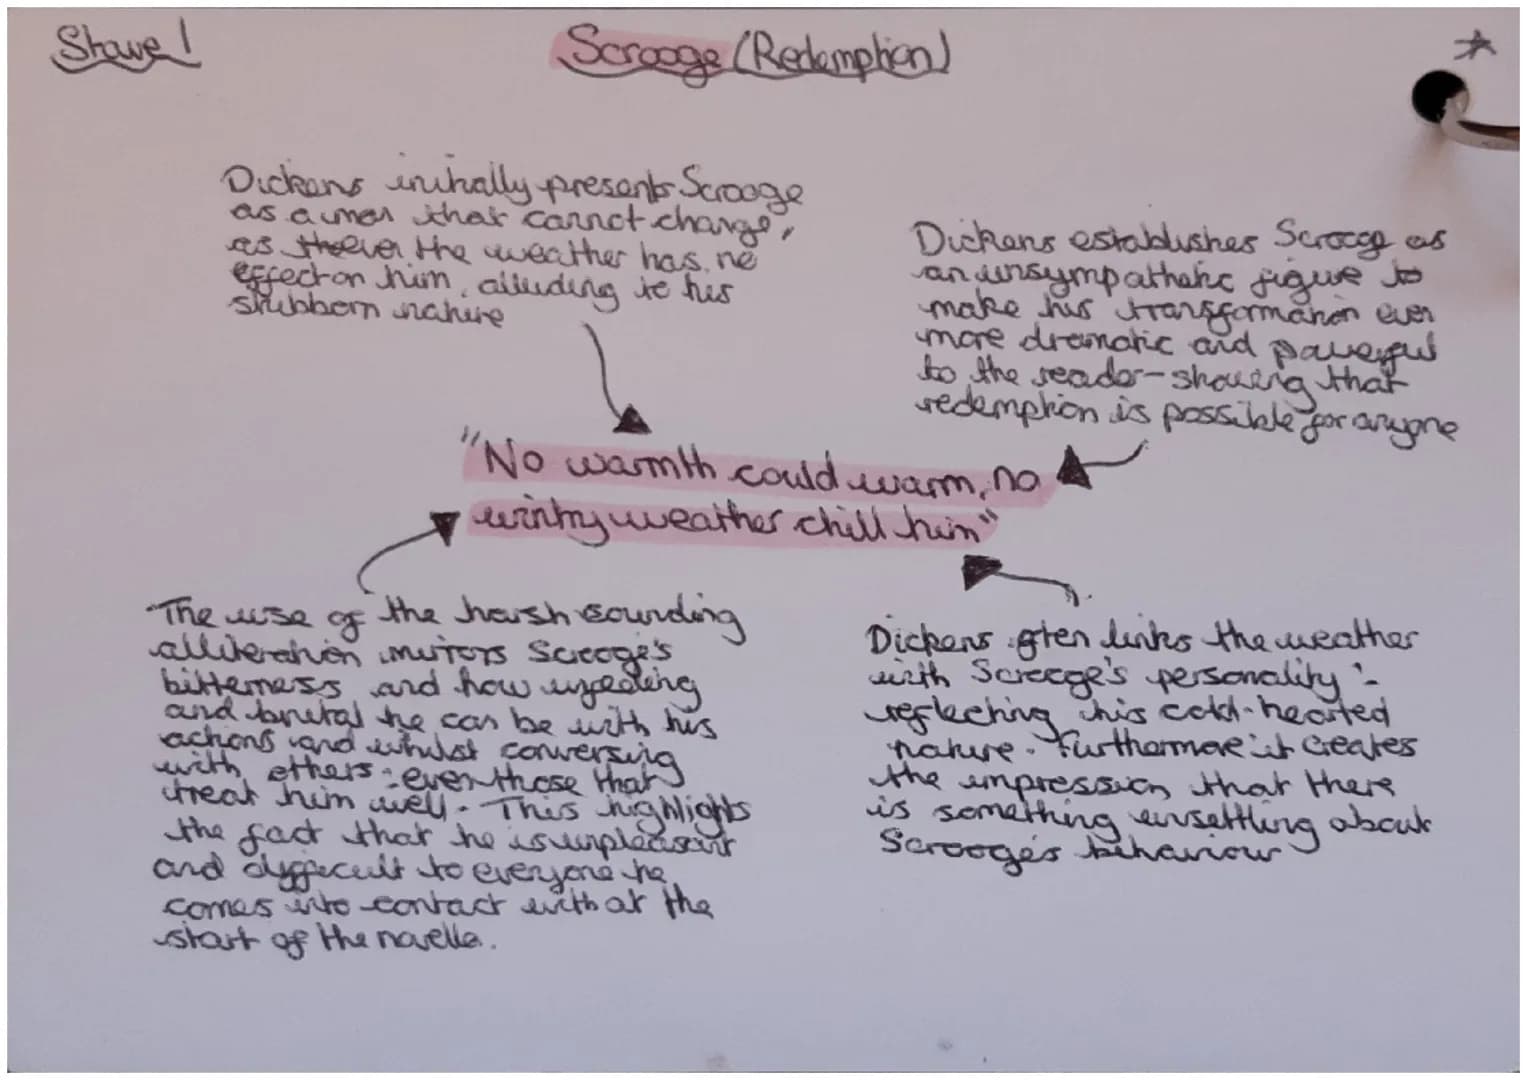 Stave 1
Scrooge (Redemption)
Dickens initially presents Scrooge
as a man that cannot change,
as the weather has no
effect on him, alluding to his
stubborn nature
Dickens establishes Scroog as
an unsympathetic figure to
make his transformation even
more dramatic and powerful
to the reader - showing that
redemption is possible for anyone
"No warmth could warm, no
wintry weather chill him"
The use of the harsh sounding
alliteration mirrors Scrooge's
bitterness and how
and brutal he can be with his
actions and whilst conversing
with others - even those that
treat him well. This highlights
the fact that he is unpleasant
and difficult to everyone he
comes into contact with at the
start of the novella.
Dickens often links the weather
with Scrooge's personality :-
reflecting his cold-hearted
nature. Furthermore it creates
the impression that there
is something unsettling about
Scrooge's behaviour